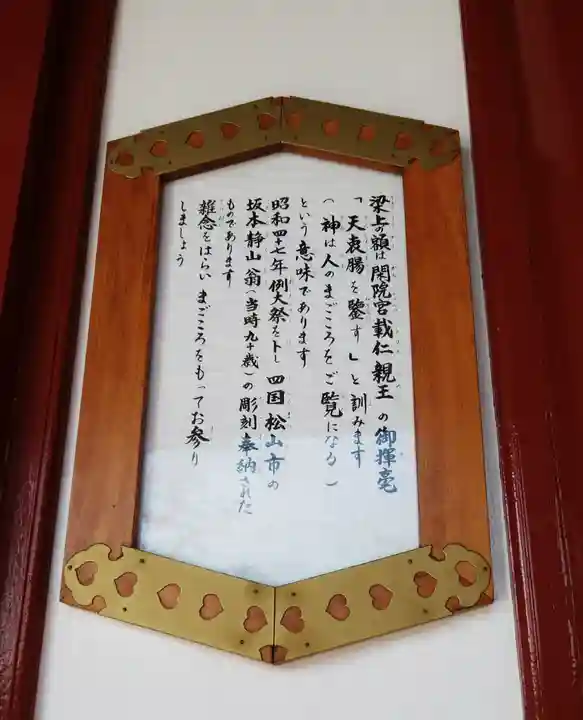 梁上の額は閑院宮載仁親王の御揮毫
「天衷腸を鑒す」と訓みます
(神は人のまごころをご覧になる)
という意味であります
昭和四十七年例大祭を卜し四国松山市の
坂本静山翁(当時九十歳)の彫刻奉納された
ものであります
雑念をはらいまごころをもってお参り
しましょう